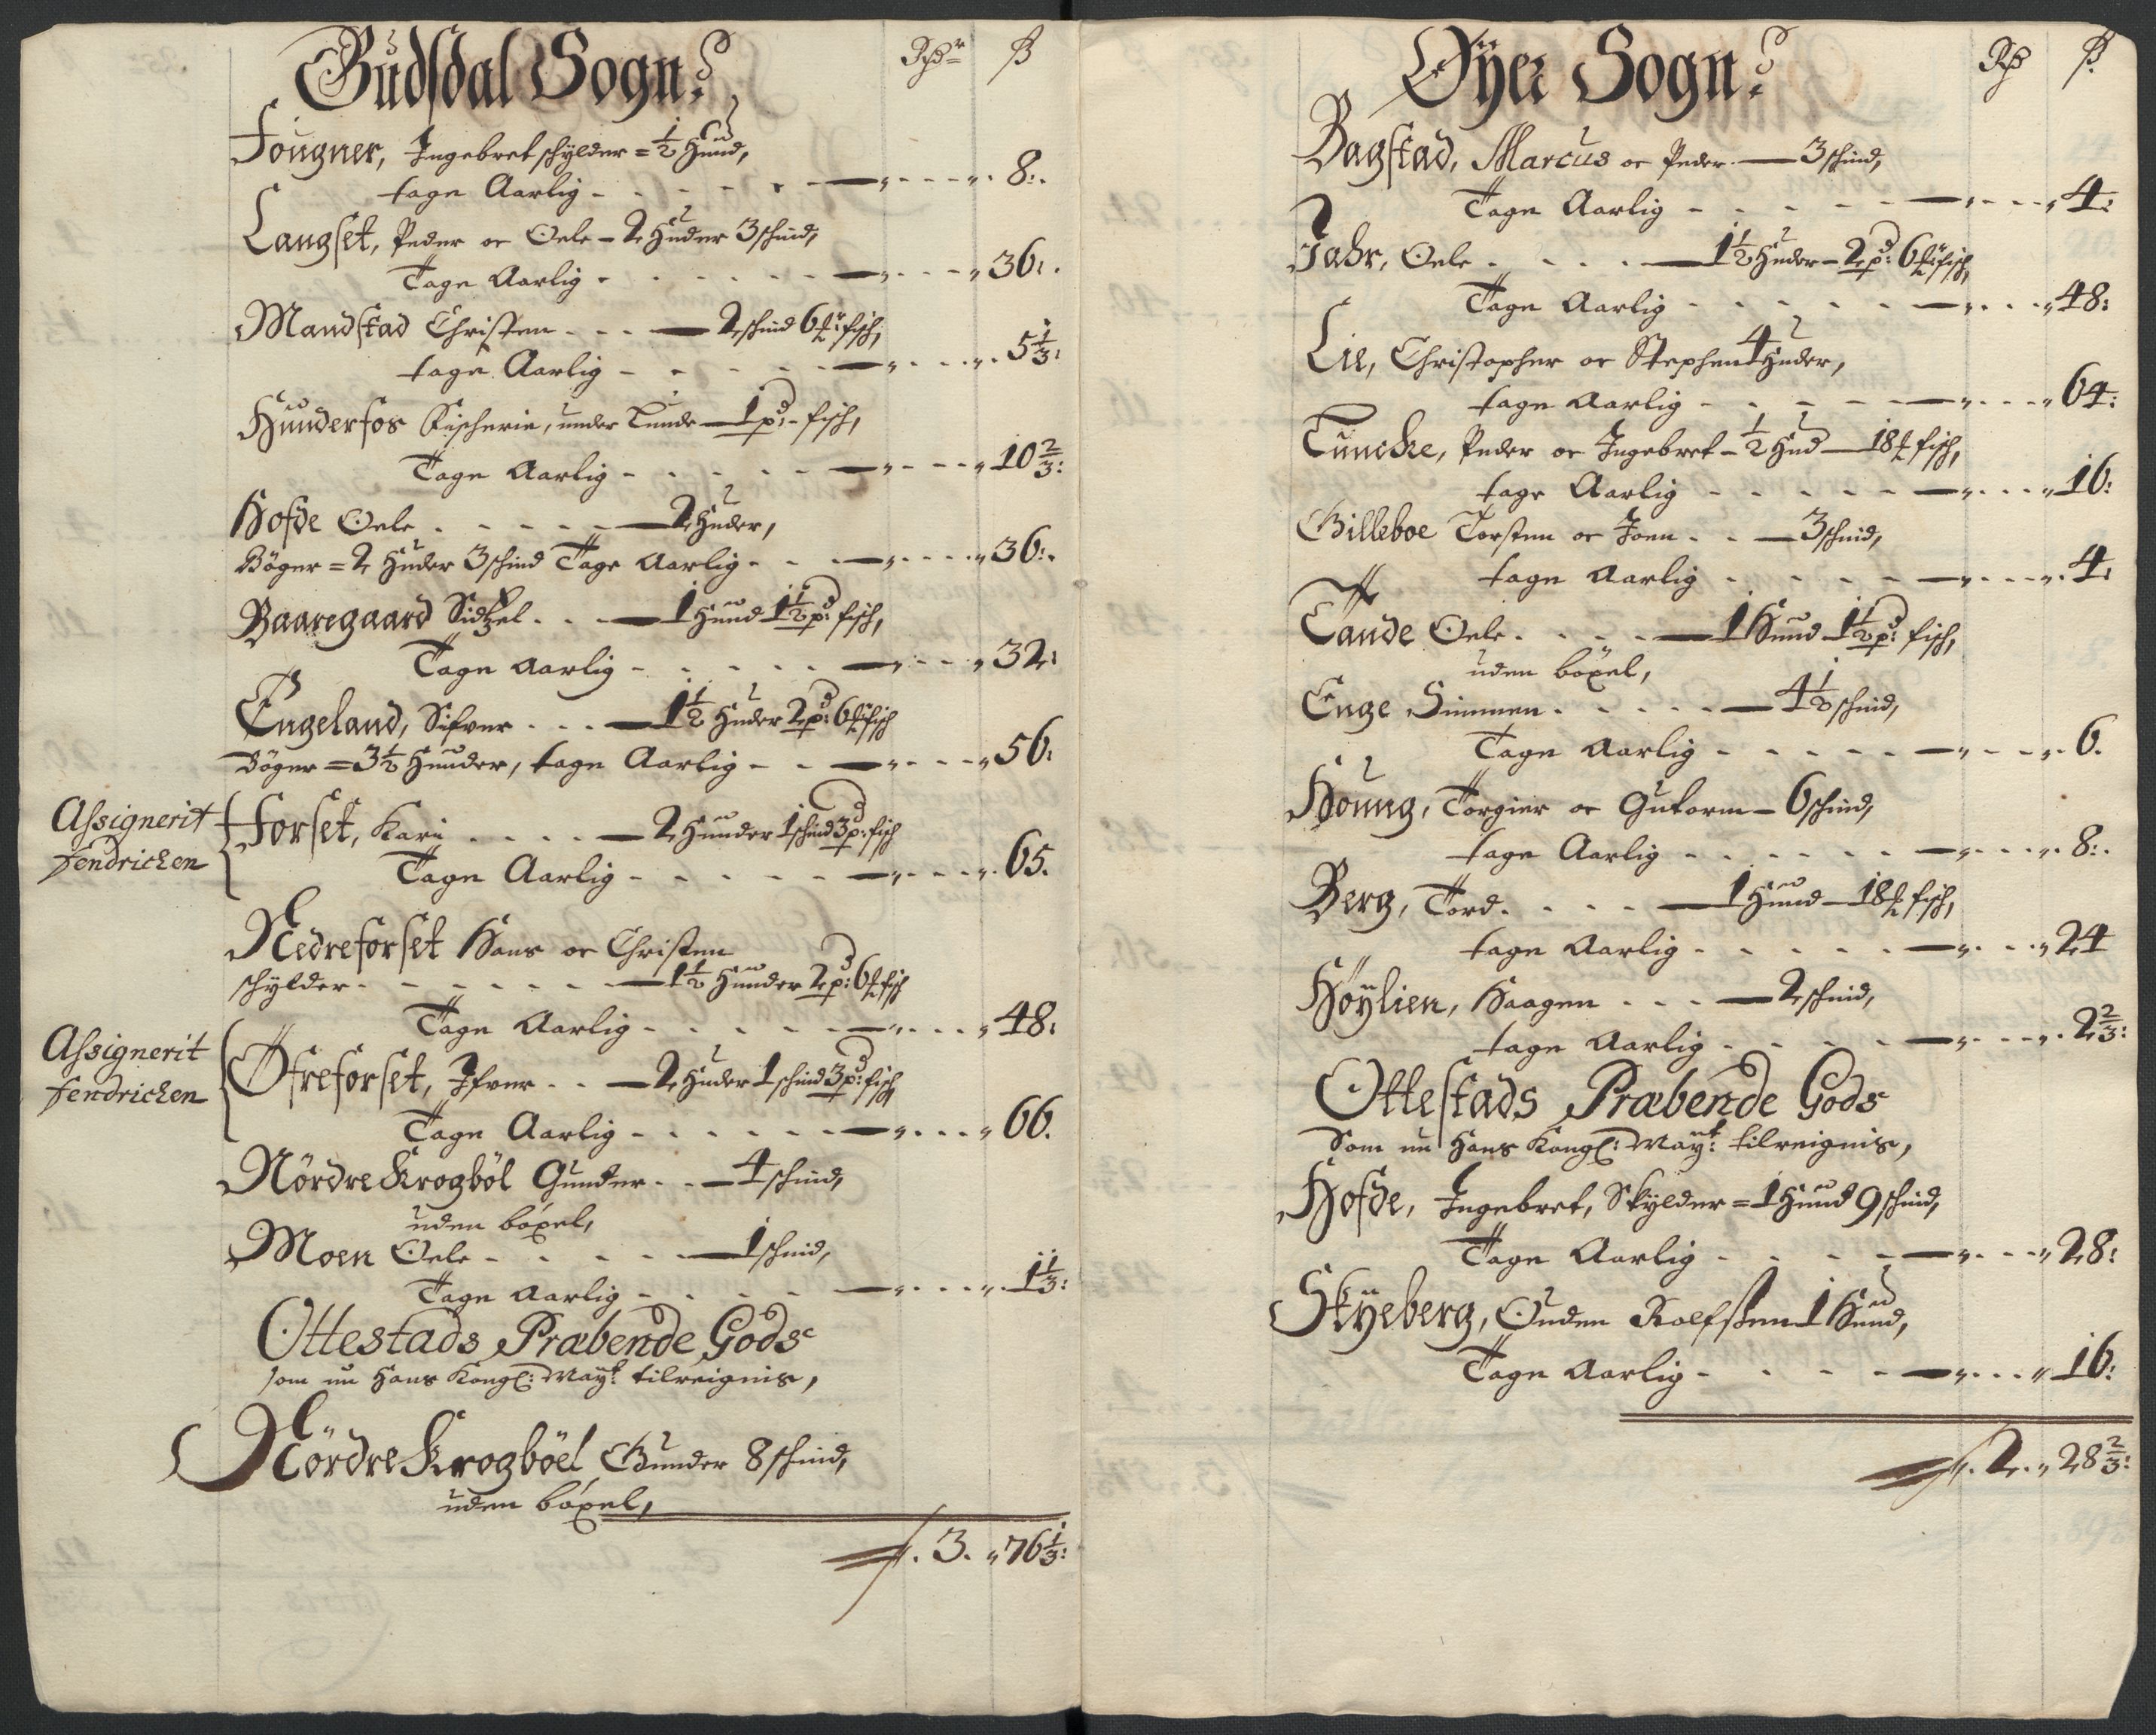 Gudsdal Sogn.
Rdr ß
Fougner, Ingebret schylder = ½ Hund,
tage Aarlig - - - - 8:
Langset, Peder oc Oele - 2 Huder 3 schind,
Tage Aarlig - - - - 36:
Mandstad Christen - - - 2 schind 6 fisch,
tage Aarlig - - - - 5⅓:
Hunderfos Fischerie, under Lunde - 1 pd: fisch,
Tage Aarlig - - - - 10⅔:
Hofde Oele - - - - 2 Huder,
Böger = 2 Huder 3 schind Tage Aarlig - - - 36:
Baaregaard Sidzel - - - 1 Hund 1½ pd: fisch,
Tage Aarlig - - - - 32:
Engeland, Sifver - - - 1½ Huder 2 pd: 6 fisch
Böger = 3½ Hunder, tage Aarlig - - - 56:
Assignerit
Fendrichen
Forset, Kari - - - - 2 Hunder 1 schind 3 pd: fisch
Tage Aarlig - - - - 65.
Nedreforset Hans oc Christen
schylder - - - - 1½ Hunder 2 pd: 6 fisch
Tage Aarlig - - - - 48:
Assignerit
Fendrichen
Öfreforset, Ifver - - - 2 Huder 1 schind 3 pd: fisch
Tage Aarlig - - - - 66.
Nördre Krogböl Gunder - - - 4 schind,
uden böxel,
Moen Oele - - - - 1 schind,
Tage Aarlig - - - - 1⅓:
Ottestads Præbende Gods
som nu Hans Kongl: Mayt: tilreignis,
Nördre Krogböel Gunder 8 schind,
uden böxel,
3. 76⅓:
Öyer Sogn.
Rd ß
Bagstad, Marcus oc Peder - 3 schind,
Tage Aarlig - - - - 4:
Jahr, Oele - - - - 1½ Huder - 2 pd: 6 fisch,
Tage Aarlig - - - - 48:
Lie, Christopher oc Stephen 4 Huder,
tage Aarlig - - - - 64:
Tuncke, Peder oc Ingebret - ½ Hud - 18 fisch,
tage Aarlig - - - - 16:
Gilleboe Torsten oc Joen - - - 3 schind,
tage Aarlig - - - - 4:
Tande Oele - - - - 1 Hund 1½ pd: fisch,
uden böxel,
Enge Simmen - - - - 4½ schind,
Tage Aarlig - - - - 6.
Houng, Torgier oc Gutorm - 6 schind,
tage Aarlig - - - - 8:
Berg, Tord - - - - 1 Hund - 18 fisch,
tage Aarlig - - - - 24
Höylien, Haagen - - - 2 schind,
tage Aarlig - - - - 2⅔:
Ottestads Præbende Gods
Som nu Hans Kongl: Mayt: tilreignis,
Hofde, Ingebret, Skylder = 1 Hund 9 schind,
Tage Aarlig - - - - 28:
Skyeberg, Ouden Rolfssen 1 Hund,
Tage Aarlig - - - - 16:
2. 28⅔: